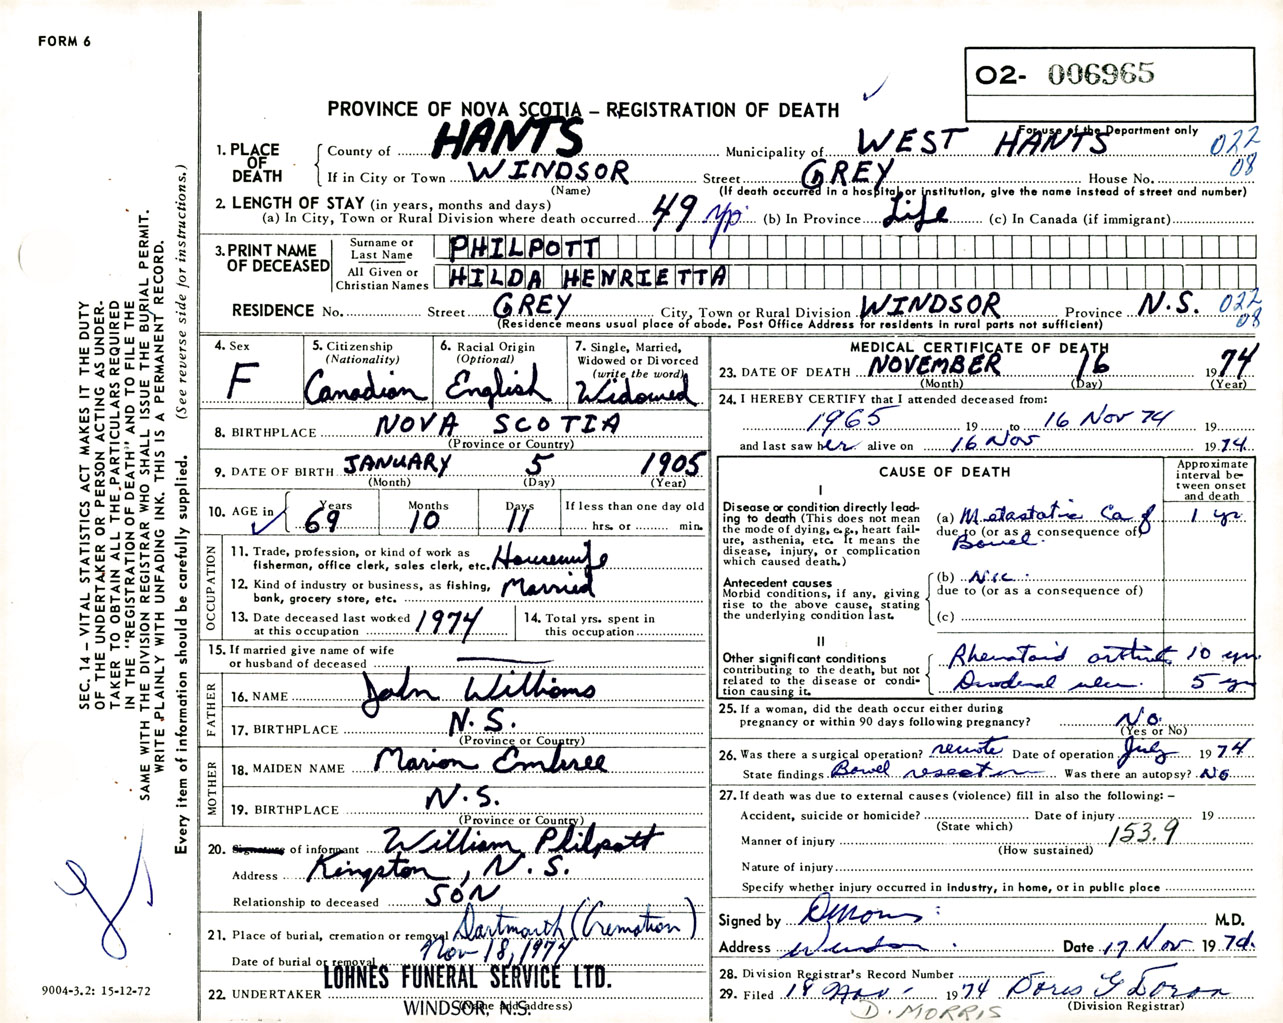 FORM 6
O2- 006965
PROVINCE OF NOVA SCOTIA – REGISTRATION OF DEATH
For use of the Department only
1. PLACE OF DEATH
County of HANTS Municipality of WEST HANTS 022
If in City or Town WINDSOR Street GREY House No. 08
(Name) (If death occurred in a hospital or institution, give the name instead of street and number)
2. LENGTH OF STAY (in years, months and days)
(a) In City, Town or Rural Division where death occurred 49 yrs (b) In Province Life (c) In Canada (if immigrant)
3. PRINT NAME OF DECEASED
Surname or Last Name PHILPOTT
All Given or Christian Names HILDA HENRIETTA
RESIDENCE No. Street GREY City, Town or Rural Division WINDSOR Province N.S. 022 08
(Residence means usual place of abode. Post Office Address for residents in rural parts not sufficient)
4. Sex F
5. Citizenship (Nationality) Canadian
6. Racial Origin (Optional) English
7. Single, Married, Widowed or Divorced (write the word) Widowed
8. BIRTHPLACE NOVA SCOTIA
(Province or Country)
9. DATE OF BIRTH JANUARY 5 1905
(Month) (Day) (Year)
10. AGE in Years 69 Months 10 Days 11 If less than one day old hrs. or min.
OCCUPATION
11. Trade, profession, or kind of work as fisherman, office clerk, sales clerk, etc. Housewife
12. Kind of industry or business, as fishing, bank, grocery store, etc. Married
13. Date deceased last worked at this occupation 1974
14. Total yrs. spent in this occupation
15. If married give name of wife or husband of deceased
FATHER
16. NAME John Williams
17. BIRTHPLACE N.S.
(Province or Country)
MOTHER
18. MAIDEN NAME Marion Embree
19. BIRTHPLACE N.S.
(Province or Country)
20. Signature of informant William Philpott
Address Kingston, N.S.
Relationship to deceased SON
21. Place of burial, cremation or removal Dartmouth (Cremation)
Date of burial or removal Nov 18, 1974
LOHNES FUNERAL SERVICE LTD.
22. UNDERTAKER
WINDSOR, N.S.
(Name and address)
MEDICAL CERTIFICATE OF DEATH
23. DATE OF DEATH NOVEMBER 16 1974
(Month) (Day) (Year)
24. I HEREBY CERTIFY that I attended deceased from:
1965 19 to 16 Nov 74 19
and last saw her alive on 16 Nov 1974
CAUSE OF DEATH
Approximate interval between onset and death
I
Disease or condition directly leading to death (This does not mean the mode of dying, e.g., heart failure, asthenia, etc. It means the disease, injury, or complication which caused death.)
(a) Metastatic Ca of Bowel 1 yr
due to (or as a consequence of)
Antecedent causes
Morbid conditions, if any, giving rise to the above cause, stating the underlying condition last.
(b)
due to (or as a consequence of)
(c)
II
Other significant conditions contributing to the death, but not related to the disease or condition causing it.
Rheumatoid arthritis 10 yrs
Duodenal ulcer 5 yrs
25. If a woman, did the death occur either during pregnancy or within 90 days following pregnancy? No.
(Yes or No)
26. Was there a surgical operation? remote Date of operation July 1974
State findings Bowel resection Was there an autopsy? No
27. If death was due to external causes (violence) fill in also the following: –
Accident, suicide or homicide? Date of injury 19
(State which)
Manner of injury 153.9
(How sustained)
Nature of injury
Specify whether injury occurred in industry, in home, or in public place
Signed by D Morris M.D.
Address Windsor Date 17 Nov 1974
28. Division Registrar's Record Number
29. Filed 18 Nov. 1974 Doris G Doran
(Division Registrar)
D. MORRIS
SEC. 14 – VITAL STATISTICS ACT MAKES IT THE DUTY
OF THE UNDERTAKER OR PERSON ACTING AS UNDER-
TAKER TO OBTAIN ALL THE PARTICULARS REQUIRED
IN THE "REGISTRATION OF DEATH" AND TO FILE THE
SAME WITH THE DIVISION REGISTRAR WHO SHALL ISSUE THE BURIAL PERMIT.
WRITE PLAINLY WITH UNFADING INK. THIS IS A PERMANENT RECORD.
Every item of information should be carefully supplied. (See reverse side for instructions.)
9004-3.2: 15-12-72